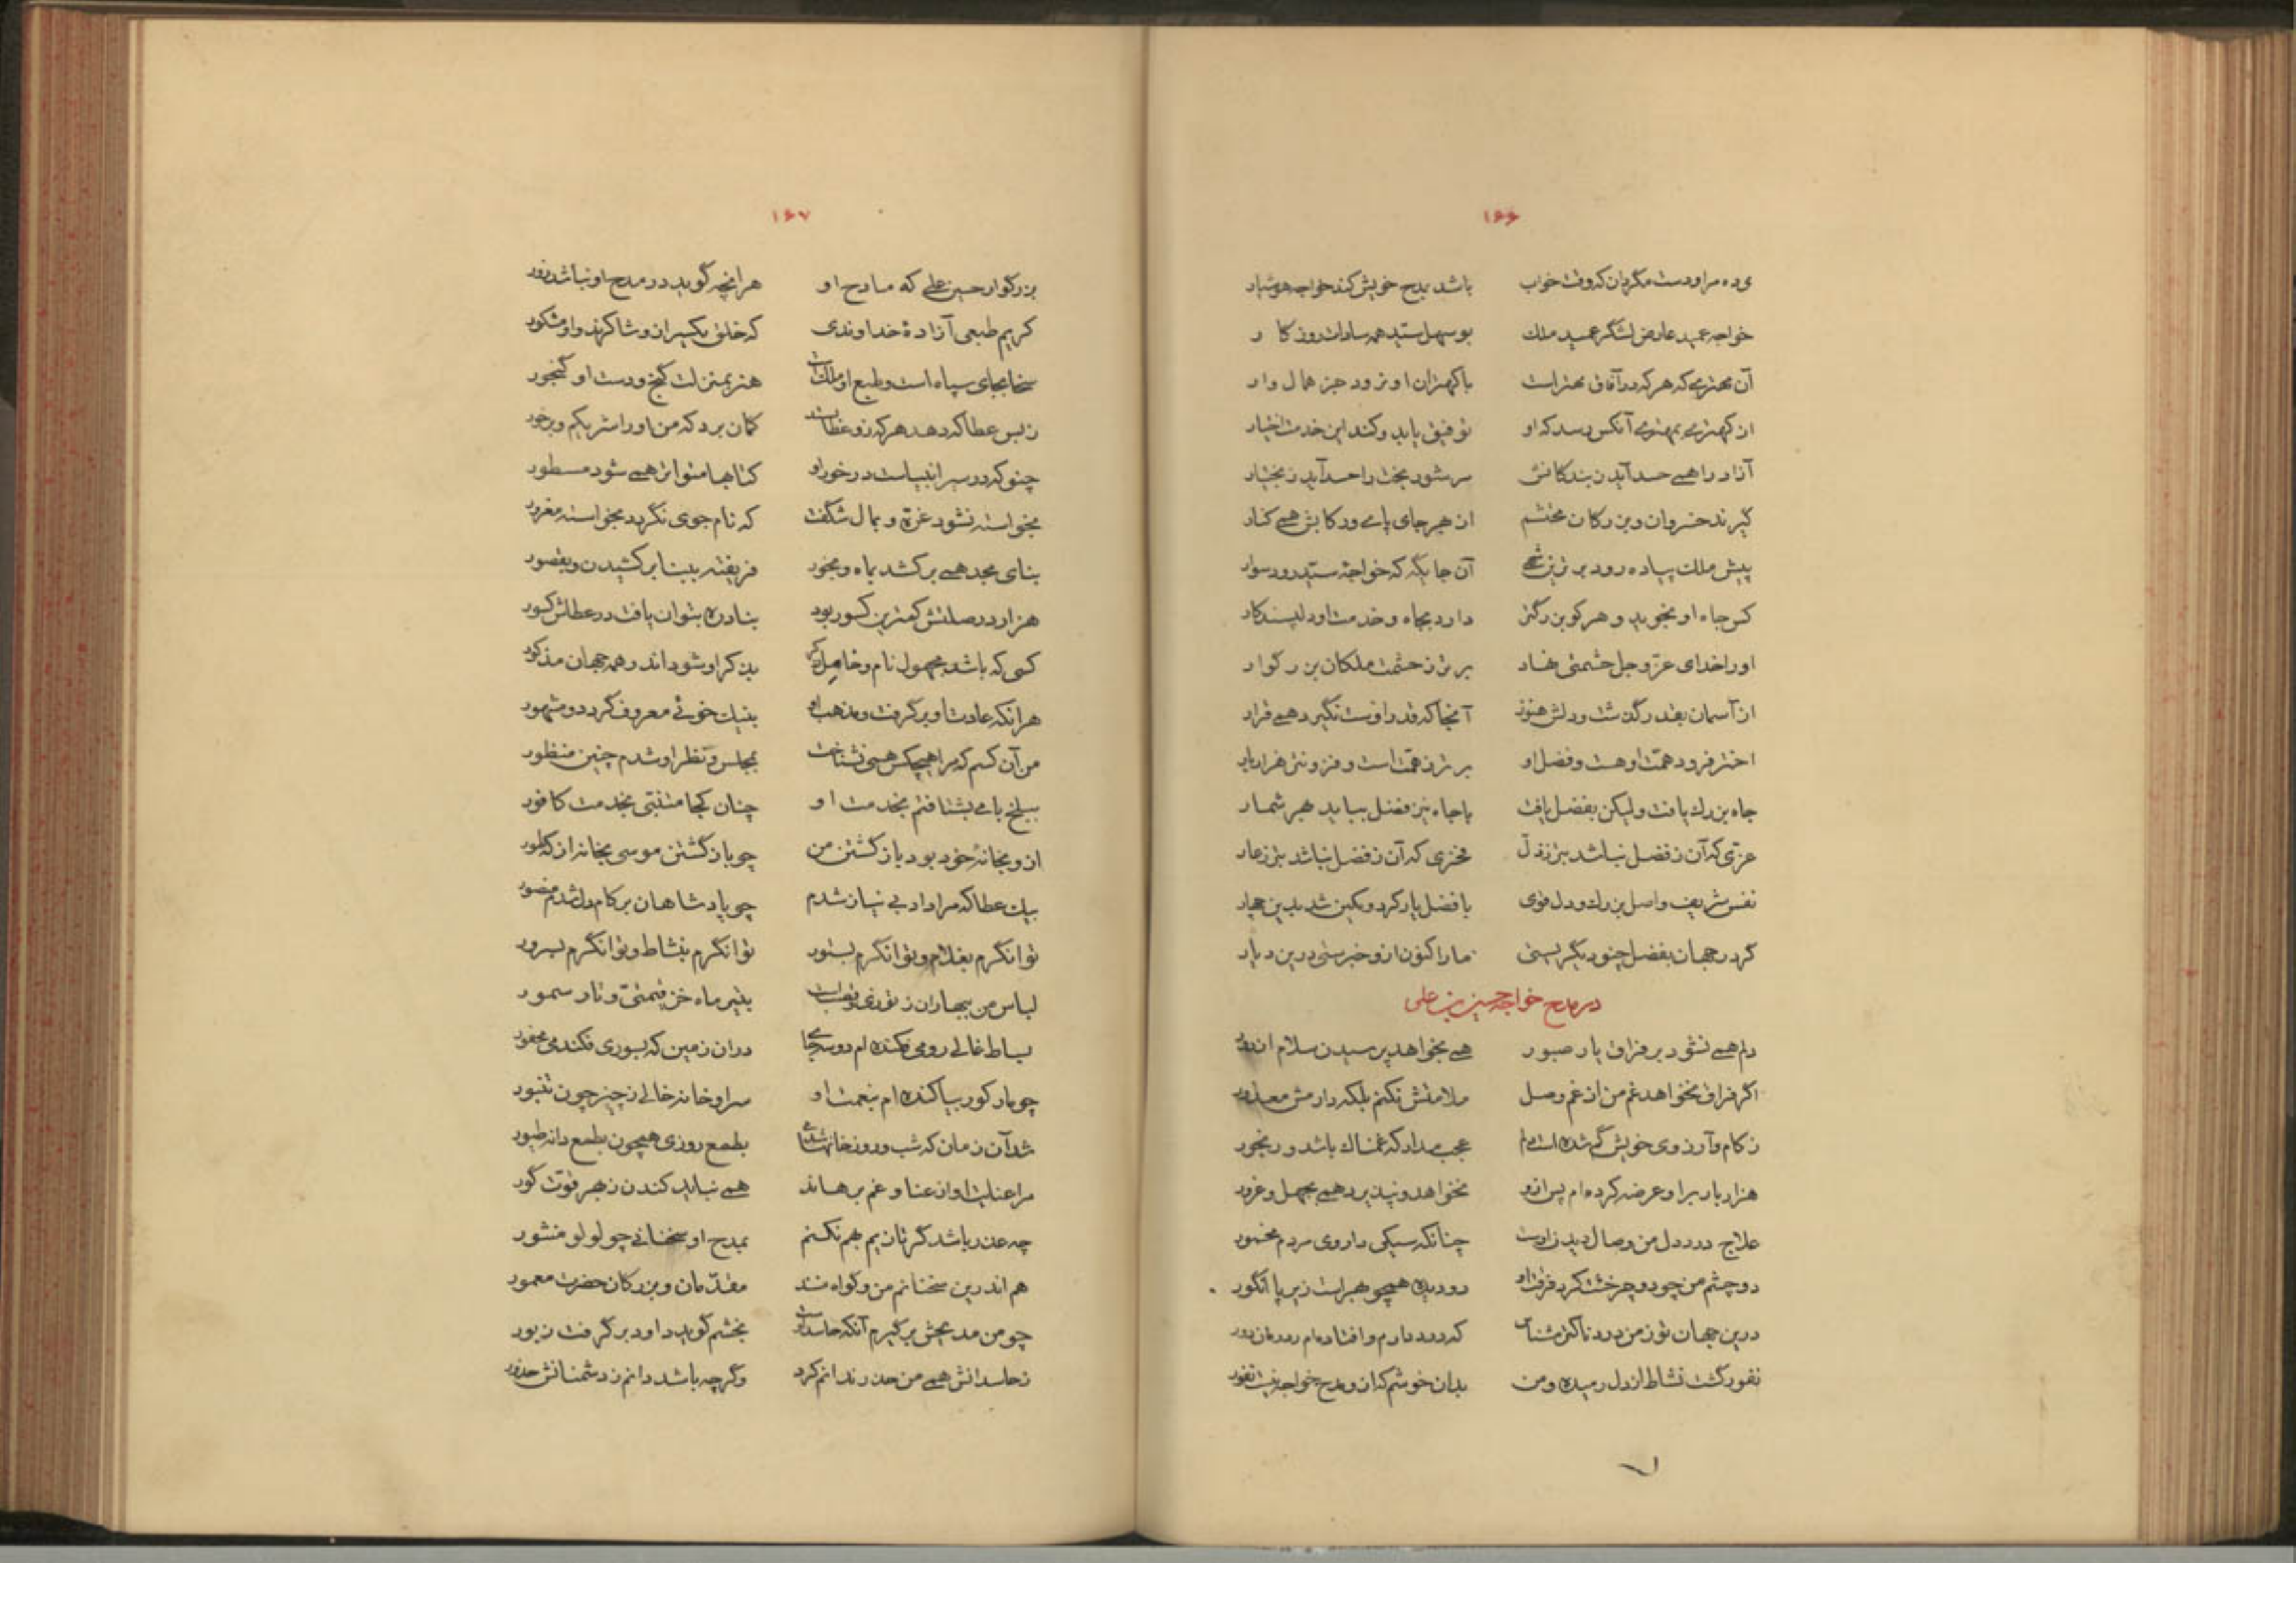 ۱۶۶
می ده مرا و دست مگردان که وقت خواب باشد بمدح خویش کند خواجه هوشیار
خواجه عمید عارض لشگر عمید ملک بوسهل سید همه سادات روزکار
آن مهتری که هر که در آفاق مهتر است با کهتران او نرود جز همال وار
از کهتری بمهتری آنکس رسد که او توفیق یابد و کند این خدمت اختیار
آزاد را همی حسد آید ز بندکانش سر شود بخت را حسد آید ز بختیار
گیرند خسروان و بزرکان محتشم از بهر جای پای ورکابش همی کنار
پیش ملک پیاده رود برترین شهی آن جایگه که خواجه سید رود سوار
کس جاه او نجوید و هر کو بزرگتر دارد بجاه و خدمت او دلپسند کار
او را خدای عز و جل حشمتی نهاد برتر ز حشمت ملکان بزرگوار
از آسمان بقدر گذشت و دلش هنوز آنجا که قدر اوست نگیرد همی قرار
اختر فرود همت او هست و فضل او برتر ز همت است و فزونتر هزار بار
جاه بزرک یافت ولیکن بفضل یافت با جاه نیز فضل بباید بهر شمار
عزی که آن ز فضل نباشد بتر ز ذل فخری که آن ز فضل نباشد بتر ز عار
نفس شریف و اصل بزرک و دل قوی با فضل یار کرد و بکین شد بدین چهار
گر در جهان بفضل چنو دیگریستی ما را کنون ازو خبرستی درین دیار
در مدح خواجه حسین بن علی
دلم همی نشود بر فراق یار صبور همی بخواهد پرسیدن سلام از دور
اگر فراق نخواهد غم من از غم وصل ملامتش نکنم بلکه دارمش معذور
ز کام و آرزوی خویش گم شده است دلم عجب مدار که غمناک باشد و رنجور
هزار بار بر او عرضه کرده ام پس ازو نخواهد و نپذیرد همی بجهل و غرور
علاج درد دل من وصال دیدن اوست چنانکه سیکی داروی مردم مخمور
دو چشم من چو دو چرخشت کرد فرقت او دو دیده همچو بهر است زیر پا انگور
درین جهان تو ز من دردناکتر مشناس که درد دارم و افتاده ام ز درمان دور
نفور گشت نشاط از دل رمیده و من بدان خوشم که ازو مدح خواجه نیست نفور
۱۶۷
بزرگوار حسین علی که مادح او هر انچه گوید در مدح او نباشد زور
کریم طبعی آزاده خداوندی که خلق یکسر ازو شاکرند و او مشکور
سخا بجای سپاه است و طبع او ملک است هنر بمنزلت گنج و دست او گنجور
ز بس عطا که دهد هر که زو عطا بستد کمان برد که من او را شریکم و برخور
چنو که در سیر انبیاست در خور او کتابها متواتر همی شود مسطور
بخواسته نشود غره و بمال شگفت که نام جوی نگردد بخواسته مغرور
بنای مجد همی بر کشد بماه و بخور فریفته ببنا بر کشیدن و بقصور
هزار در صلتش کمترین کسور بود بنادره بتوان یافت در عطاش کسور
کسی که باشد مجهول نام و خامل ذکر بذکر او شود اندر همه جهان مذکور
هر انکه عادت او برگرفت و مذهب او بنیک خوئی معروف گردد و مشهور
من آن کسم که مرا هیچکس همی نشناخت بمجلس و نظر او شدم چنین منظور
ببلخ بامی بشتافتم بخدمت او چنان کجا متنبی بخدمت کافور
ازو بخانه خود بود باز گشتن من چو باز گشتن موسی بخانه از که طور
بیک عطا که مرا داد بی نیاز شدم چو پادشاهان بر کام دل شدم منصور
توانگرم بغلام و توانگرم بستور توانگرم بنشاط و توانگرم بسرور
لباس من ببهاران ز توزی و قصب است بتیر ماه خز قیمتی و تار سمور
بساط غالی رومی فکنده ام دو سه جا در ان زمین که بسوری فکندمی محفور
چو یار کور بیاکنده ام بنعمت او سرا و خانه خالی ز چیز چون تنبور
شد آن زمان که شب و روز خانهاشدمی بطمع روزی همچون بطمع دانه طیور
مرا عنایت او از عنا و غم برهاند همی نباید کندن ز بهر قوت گور
چه عذر باشد گر تا زیم بهم نکنم بمدح او سخنانی چو لولو منثور
هم اندرین سخنانم من و گواه منند مقدمان و بزرکان حضرت معمور
چو من مدیحش برگیرم آنکه حاسد اوست بخشم گوید داود برگرفت زبور
ز حاسدانش همی من حذر ندانم کرد وگرچه باشد دانم ز دشمنانش حذور